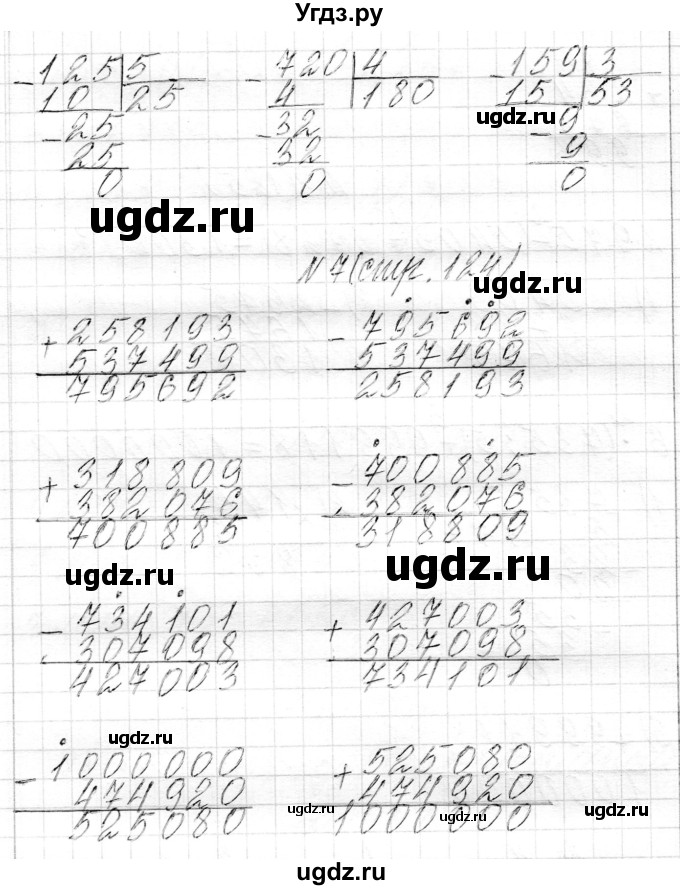 Угдз.ру
- 125 | 5
10 25
- 25
25
0
- 720 | 4
4 180
- 32
32
0
- 159 | 3
15 53
- 9
9
0
ugdz.ru
ugdz.ru
N 7 (стр. 124)
ugdz.ru
+ 258193
537499
795692
- 795692
537499
258193
+ 318809
382076
700885
- 700885
382076
318809
ugdz.ru
ugdz.ru
- 734101
307098
427003
+ 427003
307098
734101
ugdz.ru
- 1000000
474920
525080
+ 525080
474920
1000000
ugdz.ru
ugdz.ru
ugdz.ru